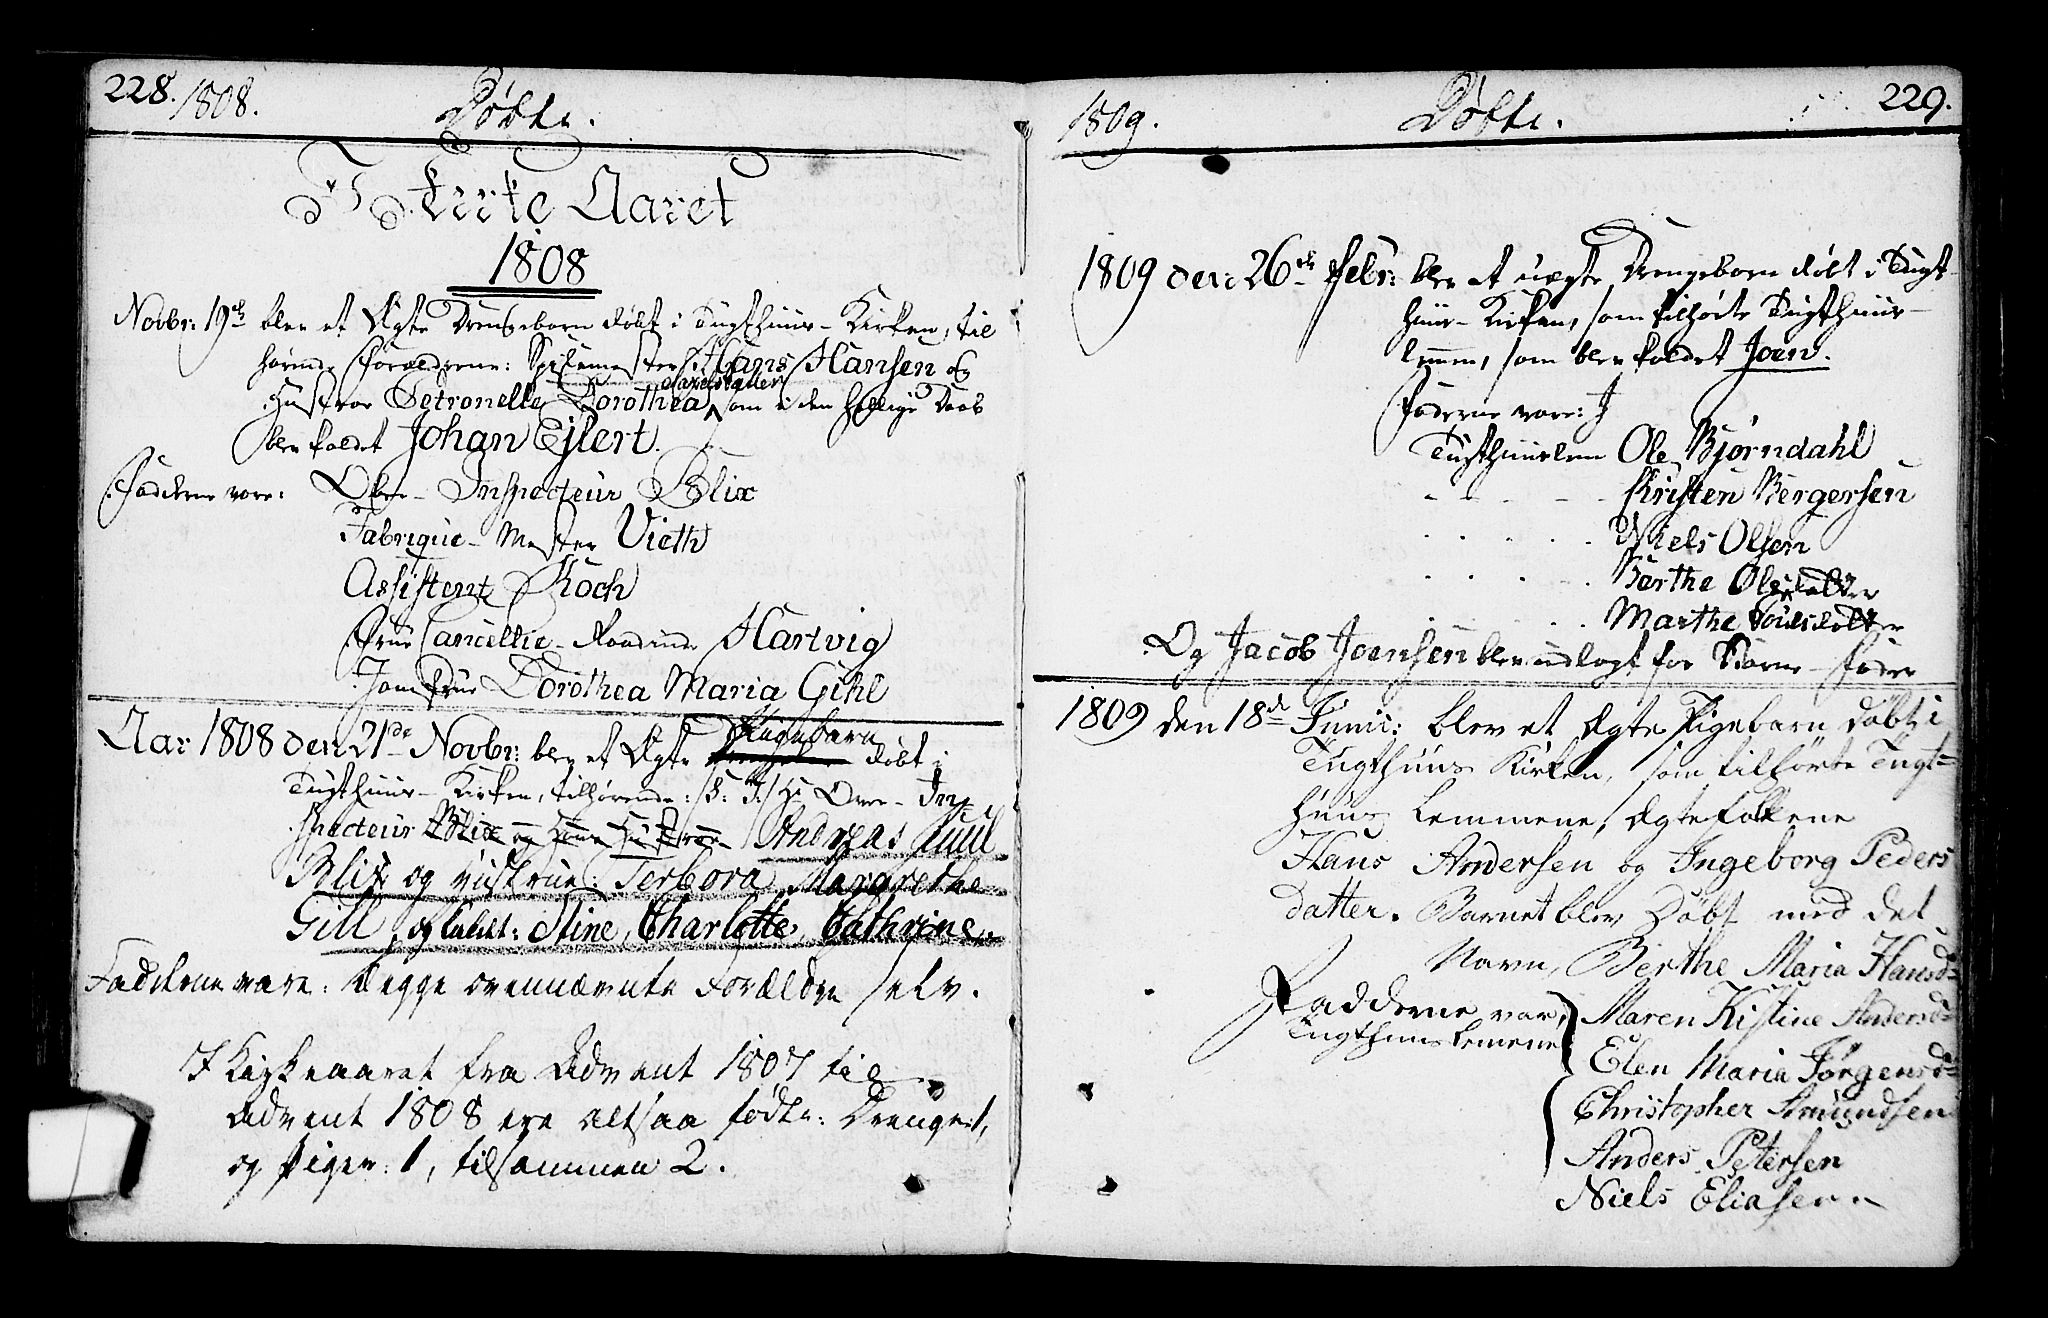 228. 1808. Døbte.
I Kirke Aaret
1808
Novbr: 19de blev et Ægte Drengebarn døbt i Tugthuus-Kirken, til
hørende Forældrene: Spisemester Hans Hansen og
Hustroe Petronelle Dorothea som i den hellige Daab
blev kaldet Johan Ejlert.
Fadderne vare: Ober-Inspecteur Blix
Fabrique-Mester Vieth
Assistent Koch
Frue Cancellie-Raadinde Hartvig
Jomfrue Dorothea Maria Gihl
Aar 1808 den 21de Novbr: blev et Ægte Pigebarn døbt i
Tugthuus-Kirken, tilhørende: S: T: Hr Over-In-
specteur Blix og Hans Hustroe Andreas Juul
Blix og Hustrue: Terbora Margrethe
Gill og kaldt: Stine, Charlotte, Cathrine.
Fadderne vare: Begge ovennævnte Forældre selv.
I Kirkeaaret fra Advent 1807 til
Advent 1808 ere altsaa fødte: Drenge: 1,
og Piger: 1, tilsammen 2.
1809. Døbte. 229.
1809 den 26de Febr: blev et uægte Drengebarn døbt i Tugt
huus-Kirken, som tilhørte Tugthuus-
lemm, som blev kaldet Joen.
Fadderne vare:
Tugthuuslem Ole Bjørndahl
- - - - - Kristen Bergersen
- - - - - Niels Olsen
- - - - - Berthe Olsdatter
- - - - - Marthe Poulsdatter
Og Jacob Joensen blev udlagt for Barne-Fader
1809 den 18de Junii: blev et Ægte Pigebarn døbt i
Tugthuus Kirken, som tilhørte Tugt-
huus Lemmene, Ægtefolkene
Hans Andersen og Ingeborg Peders
datter. Barnet blev Døbt med det
Navn, Berthe Maria Hansd=
Fadderne var, Maren Kistine Andersd=
Tugthuus Lemene Elen Maria Jørgensd=
Christopher Amundsen
Anders Petersen
Niels Eliasen